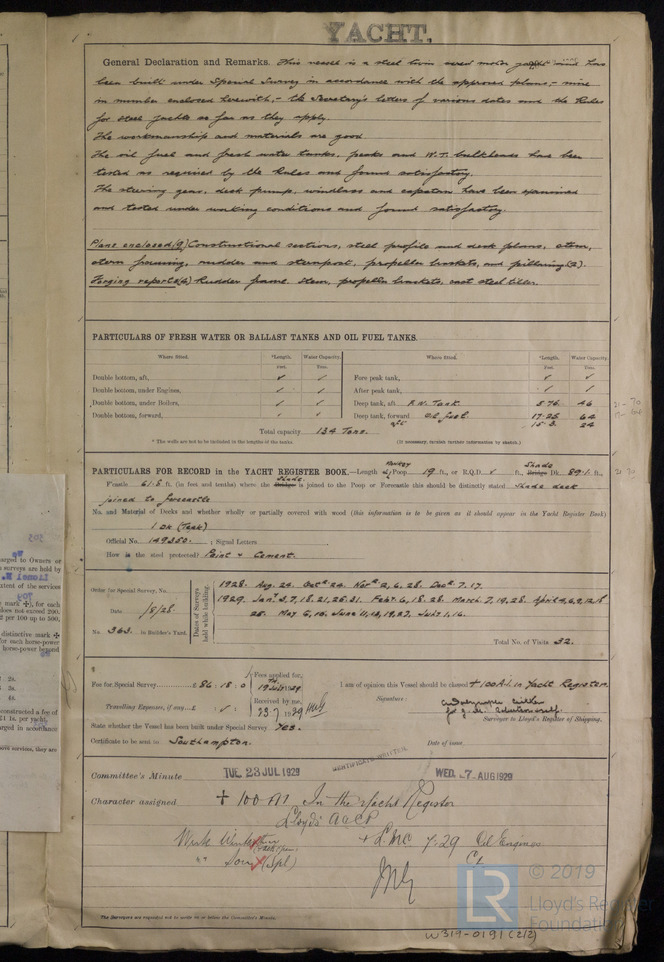 YACHT.
General Declaration and Remarks. This vessel is a steel twin screw motor yacht and has
been built under Special Survey in accordance with the approved plans,- nine
in number enclosed herewith,- the Secretary's letters of various dates and the Rules
for steel yachts as far as they apply.
The workmanship and materials are good
The oil fuel and fresh water tanks, peaks and W.T. bulkheads have been
tested as required by the Rules and found satisfactory.
The steering gear, deck pump, windlass and capstan have been examined
and tested under working conditions and found satisfactory.
Plans enclosed (9) Constructional sections, steel profile and deck plans, stem,
stern framing, rudder and sternpost, propeller brackets, and pillaring (2).
Forging reports (4) Rudder frame, stem, propeller brackets, cast steel tiller.
PARTICULARS OF FRESH WATER OR BALLAST TANKS AND OIL FUEL TANKS.
Where fitted. *Length. Water Capacity. Where fitted. *Length. Water Capacity.
Feet. Tons. Feet. Tons.
Double bottom, aft, ✓ ✓ Fore peak tank, ✓ ✓
Double bottom, under Engines, ✓ ✓ After peak tank, ✓ ✓
Double bottom, under Boilers, ✓ ✓ Deep tank, aft F.W. Tank 5.76 46
Double bottom, forward, ✓ ✓ Deep tank, forward Oil fuel 17.25 64
aft 15.3 24
Total capacity 134 Tons.
* The wells are not to be included in the lengths of the tanks. (If necessary, furnish further information by sketch.)
PARTICULARS FOR RECORD in the YACHT REGISTER BOOK.—Length of Poop 19 ft., or R.Q.D. ✓ ft., Shade Bridge Dk 89.1 ft.,
Forecastle 61.8 ft. (in feet and tenths) where the Shade Bridge is joined to the Poop or Forecastle this should be distinctly stated Shade deck
joined to forecastle
No. and Material of Decks and whether wholly or partially covered with wood (this information is to be given as it should appear in the Yacht Register Book)
1 DK (Teak)
Official No. 149350. ; Signal Letters
How is the steel protected? Paint & Cement.
Order for Special Survey, No.
Date /8/28.
No. 363. in Builder's Yard.
Dates of Surveys held while building.
1928. Aug. 24. Oct. 24. Nov. 2, 6, 28. Dec. 7, 17.
1929. Jan. 3, 7, 18, 21, 25, 31. Feb. 6, 18, 28. March. 7, 19, 28. April 4, 6, 9, 12, 18
25. May 6, 16. June 11, 13, 19, 27. July 1, 16.
Total No. of Visits 32.
Fee for Special Survey £ 86 : 18 : 0
Fees applied for,
19th July 1929
Travelling Expenses, if any £ : ✓ :
Received by me,
23.7.1929
I am of opinion this Vessel should be classed + 100 A.1. in Yacht Register.
Signature
Surveyor to Lloyd's Register of Shipping.
State whether the Vessel has been built under Special Survey Yes.
Certificate to be sent to Southampton Date of issue
Committee's Minute TUE. 23 JUL 1929 CERTIFICATE WRITTEN WED. 7 AUG 1929
Character assigned + 100 A1 In the Yacht Register
Lloyd's A & CP
+ LMC 7.29 Oil Engines
The Surveyors are requested not to write on or below the Committee's Minute.
W319-0191 (2/2)
© 2019
Lloyd's Register
Foundation
LR